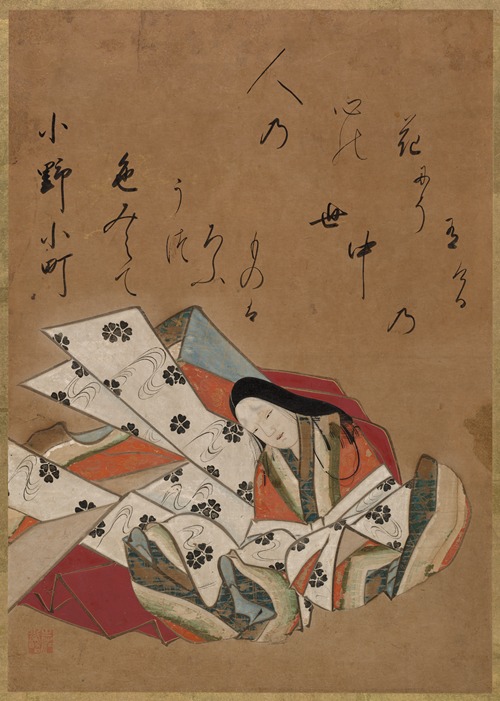 小野小町
色みえて
うつ
ろふ
ものは
世
中
乃
人乃
心の
花にそ
有
ける